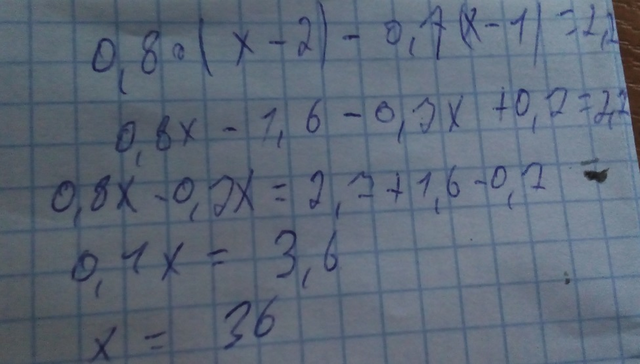 0,8·(x-2)-0,7(x-1)=2,7
0,8x-1,6-0,7x+0,7=2,7
0,8x-0,7x=2,7+1,6-0,7
0,1x=3,6
x=36